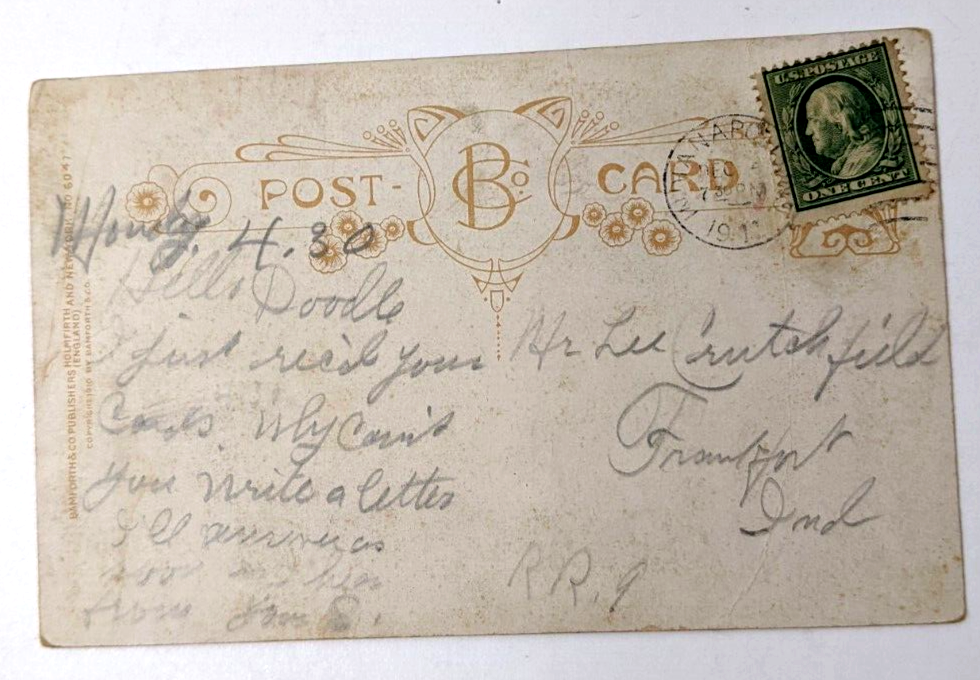 POST- B Co. CARD
U.S. POSTAGE
ONE CENT
7 30 PM
1911
BAMFORTH & CO PUBLISHERS HOLMFIRTH AND NEW YORK
(ENGLAND)
COPYRIGHT 1910 BY BAMFORTH & CO.
Mondy. 4.30
Hello Doodle
I just rec'd your
Cards. Why Can't
you write a letter
I'll answer as
soon as
from Jim
Mr Lee Crutchfield
Frankfort
Ind
RR. 9